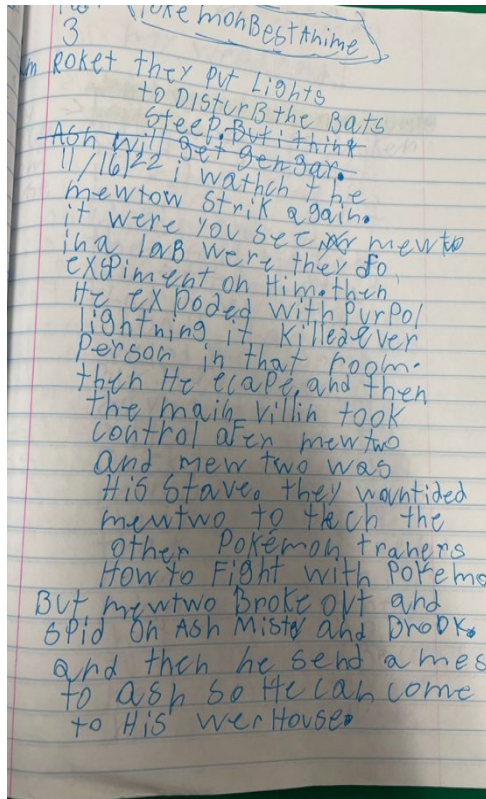 PokemonBestAnime
3
m Roket they put Lights
to DisturB the Bats
Sleep. But i think
Ash will get gengar.
11/16/22 i wathch the
mewtow Strik again.
it were you see mewtwo
in a laB were they do
exspiment on Him. then
He exPoded with PurPol
lightning it killed ever
Person in that room.
then He ecape, and then
the main villin took
control aFer mewtwo
and mew two was
His Slave. they wountided
mewtwo to tech the
other Pokémon traners
How to Fight with Pokemo
But mewtwo Broke out and
spid on Ash Misty and Brook.
and then he send a mes
to ash so He can come
to His werHouse.